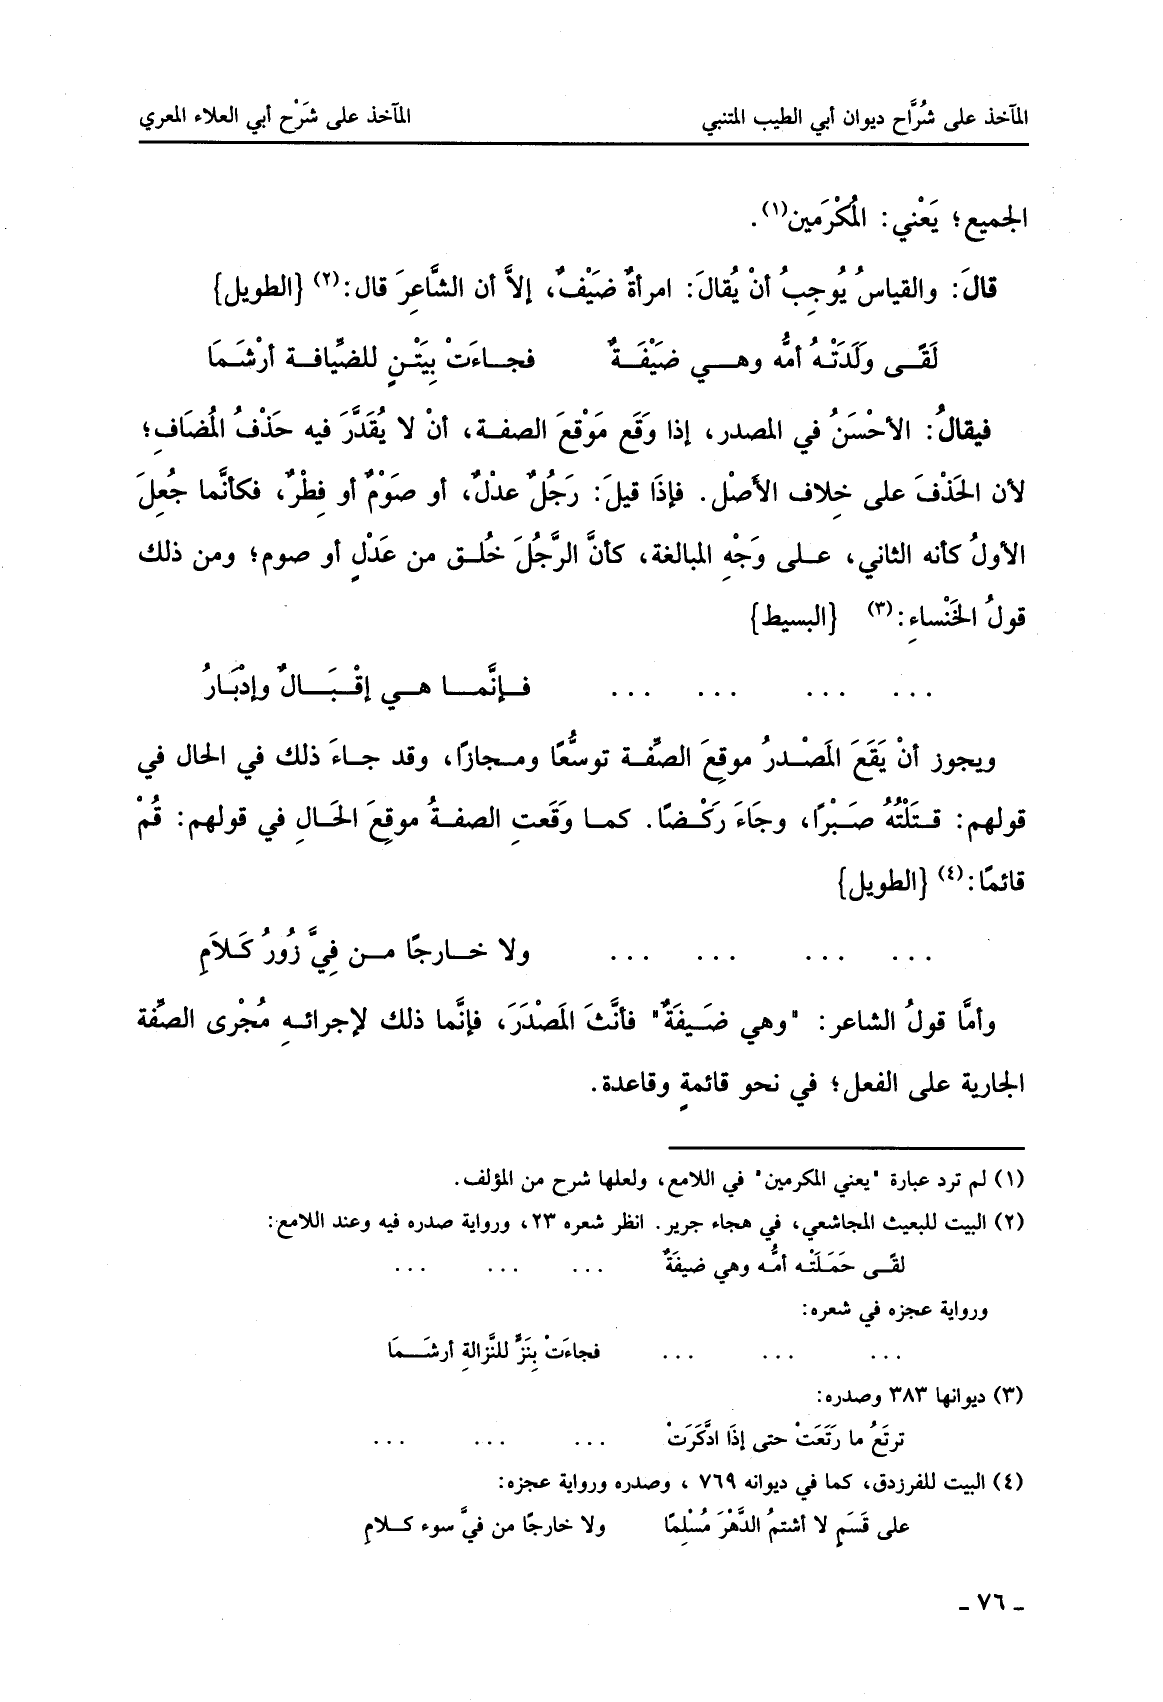 المآخذ على شُرَّاح ديوان أبي الطيب المتنبي المآخذ على شَرْح أبي العلاء المعري
الجميع؛ يَعْني: المُكْرَمين(١).
قالَ: والقياسُ يُوجِبُ أنْ يُقالَ: امرأةٌ ضَيْفٌ، إلاَّ أن الشَّاعِرَ قال:(٢) {الطويل}
لَقًى ولَدَتْهُ أمُّه وهي ضَيْفَةٌ فجاءَتْ بِيَتْنٍ للضِّيافة أرْشَمَا
فيقالُ: الأحْسَنُ في المصدر، إذا وقَع مَوْقعَ الصفة، أنْ لا يُقَدَّرَ فيه حَذْفُ المُضَافِ؛
لأن الحَذْفَ على خِلاف الأَصْل. فإذَا قيلَ: رَجُلٌ عدْلٌ، أو صَوْمٌ أو فِطْرٌ، فكأنَّما جُعِلَ
الأولُ كأنه الثاني، على وَجْهِ المبالغة، كأنَّ الرَّجُلَ خُلق من عَدْلٍ أو صوم؛ ومن ذلك
قولُ الخَنْساءِ:(٣) {البسيط}
... ... ... ... فإنَّما هي إقْبَالٌ وإدْبَارُ
ويجوز أنْ يَقَعَ المَصْدرُ موقعَ الصِّفة توسُّعًا ومجازًا، وقد جاءَ ذلك في الحال في
قولهم: قتَلْتُهُ صَبْرًا، وجَاءَ رَكْضًا. كما وَقَعتِ الصفةُ موقِعَ الحَالِ في قولهم: قُمْ
قائمًا:(٤) {الطويل}
... ... ... ... ولا خارجًا من فِيَّ زُورُ كَلاَمِ
وأمَّا قولُ الشاعر: "وهي ضَيفَةٌ" فأنَّثَ المَصْدَرَ، فإنَّما ذلك لإجرائهِ مُجْرى الصِّفة
الجارية على الفعل؛ في نحو قائمةٍ وقاعدة.
(١) لم ترد عبارة "يعني المكرمين" في اللامع، ولعلها شرح من المؤلف.
(٢) البيت للبعيث المجاشعي، في هجاء جرير. انظر شعره ٢٣، ورواية صدره فيه وعند اللامع:
لقًى حَمَلَتْه أمُّه وهي ضيفَةٌ ... ... ...
ورواية عجزه في شعره:
... ... ... فجاءَتْ بِنَزٍّ للنَّزالةِ أرشَمَا
(٣) ديوانها ٣٨٣ وصدره:
ترتَعُ ما رَتَعَتْ حتى إذَا ادَّكَرَتْ ... ... ...
(٤) البيت للفرزدق، كما في ديوانه ٧٦٩ ، وصدره ورواية عجزه:
على قَسَمٍ لا أشتمُ الدَّهْرَ مُسْلِمًا ولا خارجًا من فيَّ سوء كلامِ
ـ ٧٦ ـ